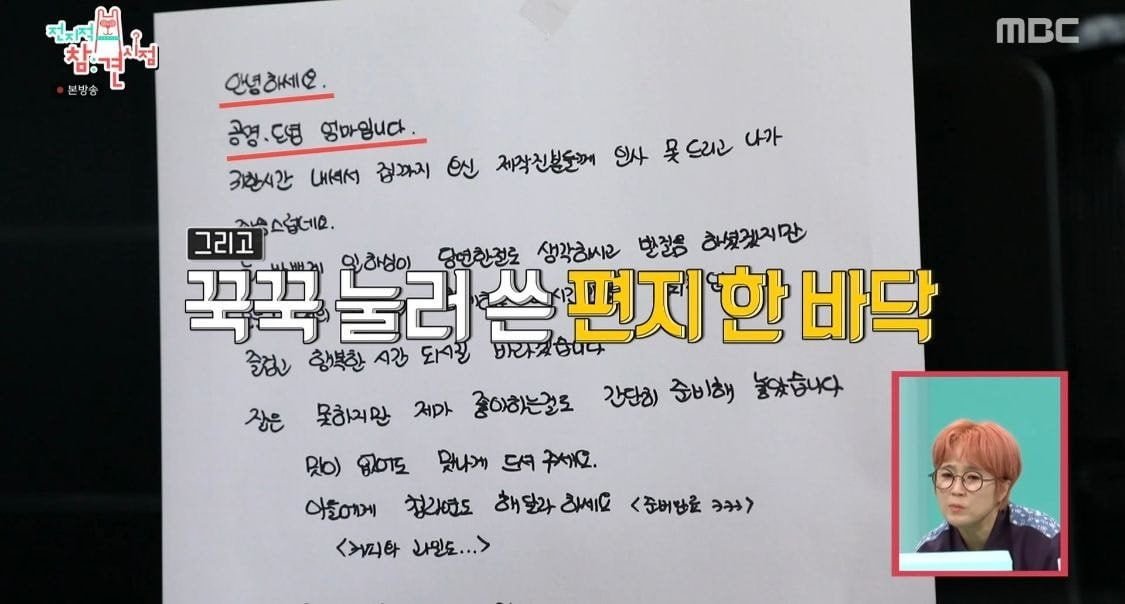 전지적
참견
시점
본방송
MBC
안녕하세요.
공명. 도영 엄마입니다.
귀한시간 내셔서 집까지 오신 제작진분들께 인사 못 드리고 나가
그리고
일하심이 당연한걸로 생각하시고 발걸음 하셨겠지만
꾹꾹 눌러 쓴 편지 한 바닥
즐겁고 행복한 시간 되시길 바라겠습니다
잘은 못하지만 제가 좋아하는걸로 간단히 준비해 놓았습니다
맛이 없어도 맛나게 드셔 주세요.
아들에게 집라면도 해달라 하세요 <준비만료 ㅋㅋㅋ>
<커피와 과일도...>